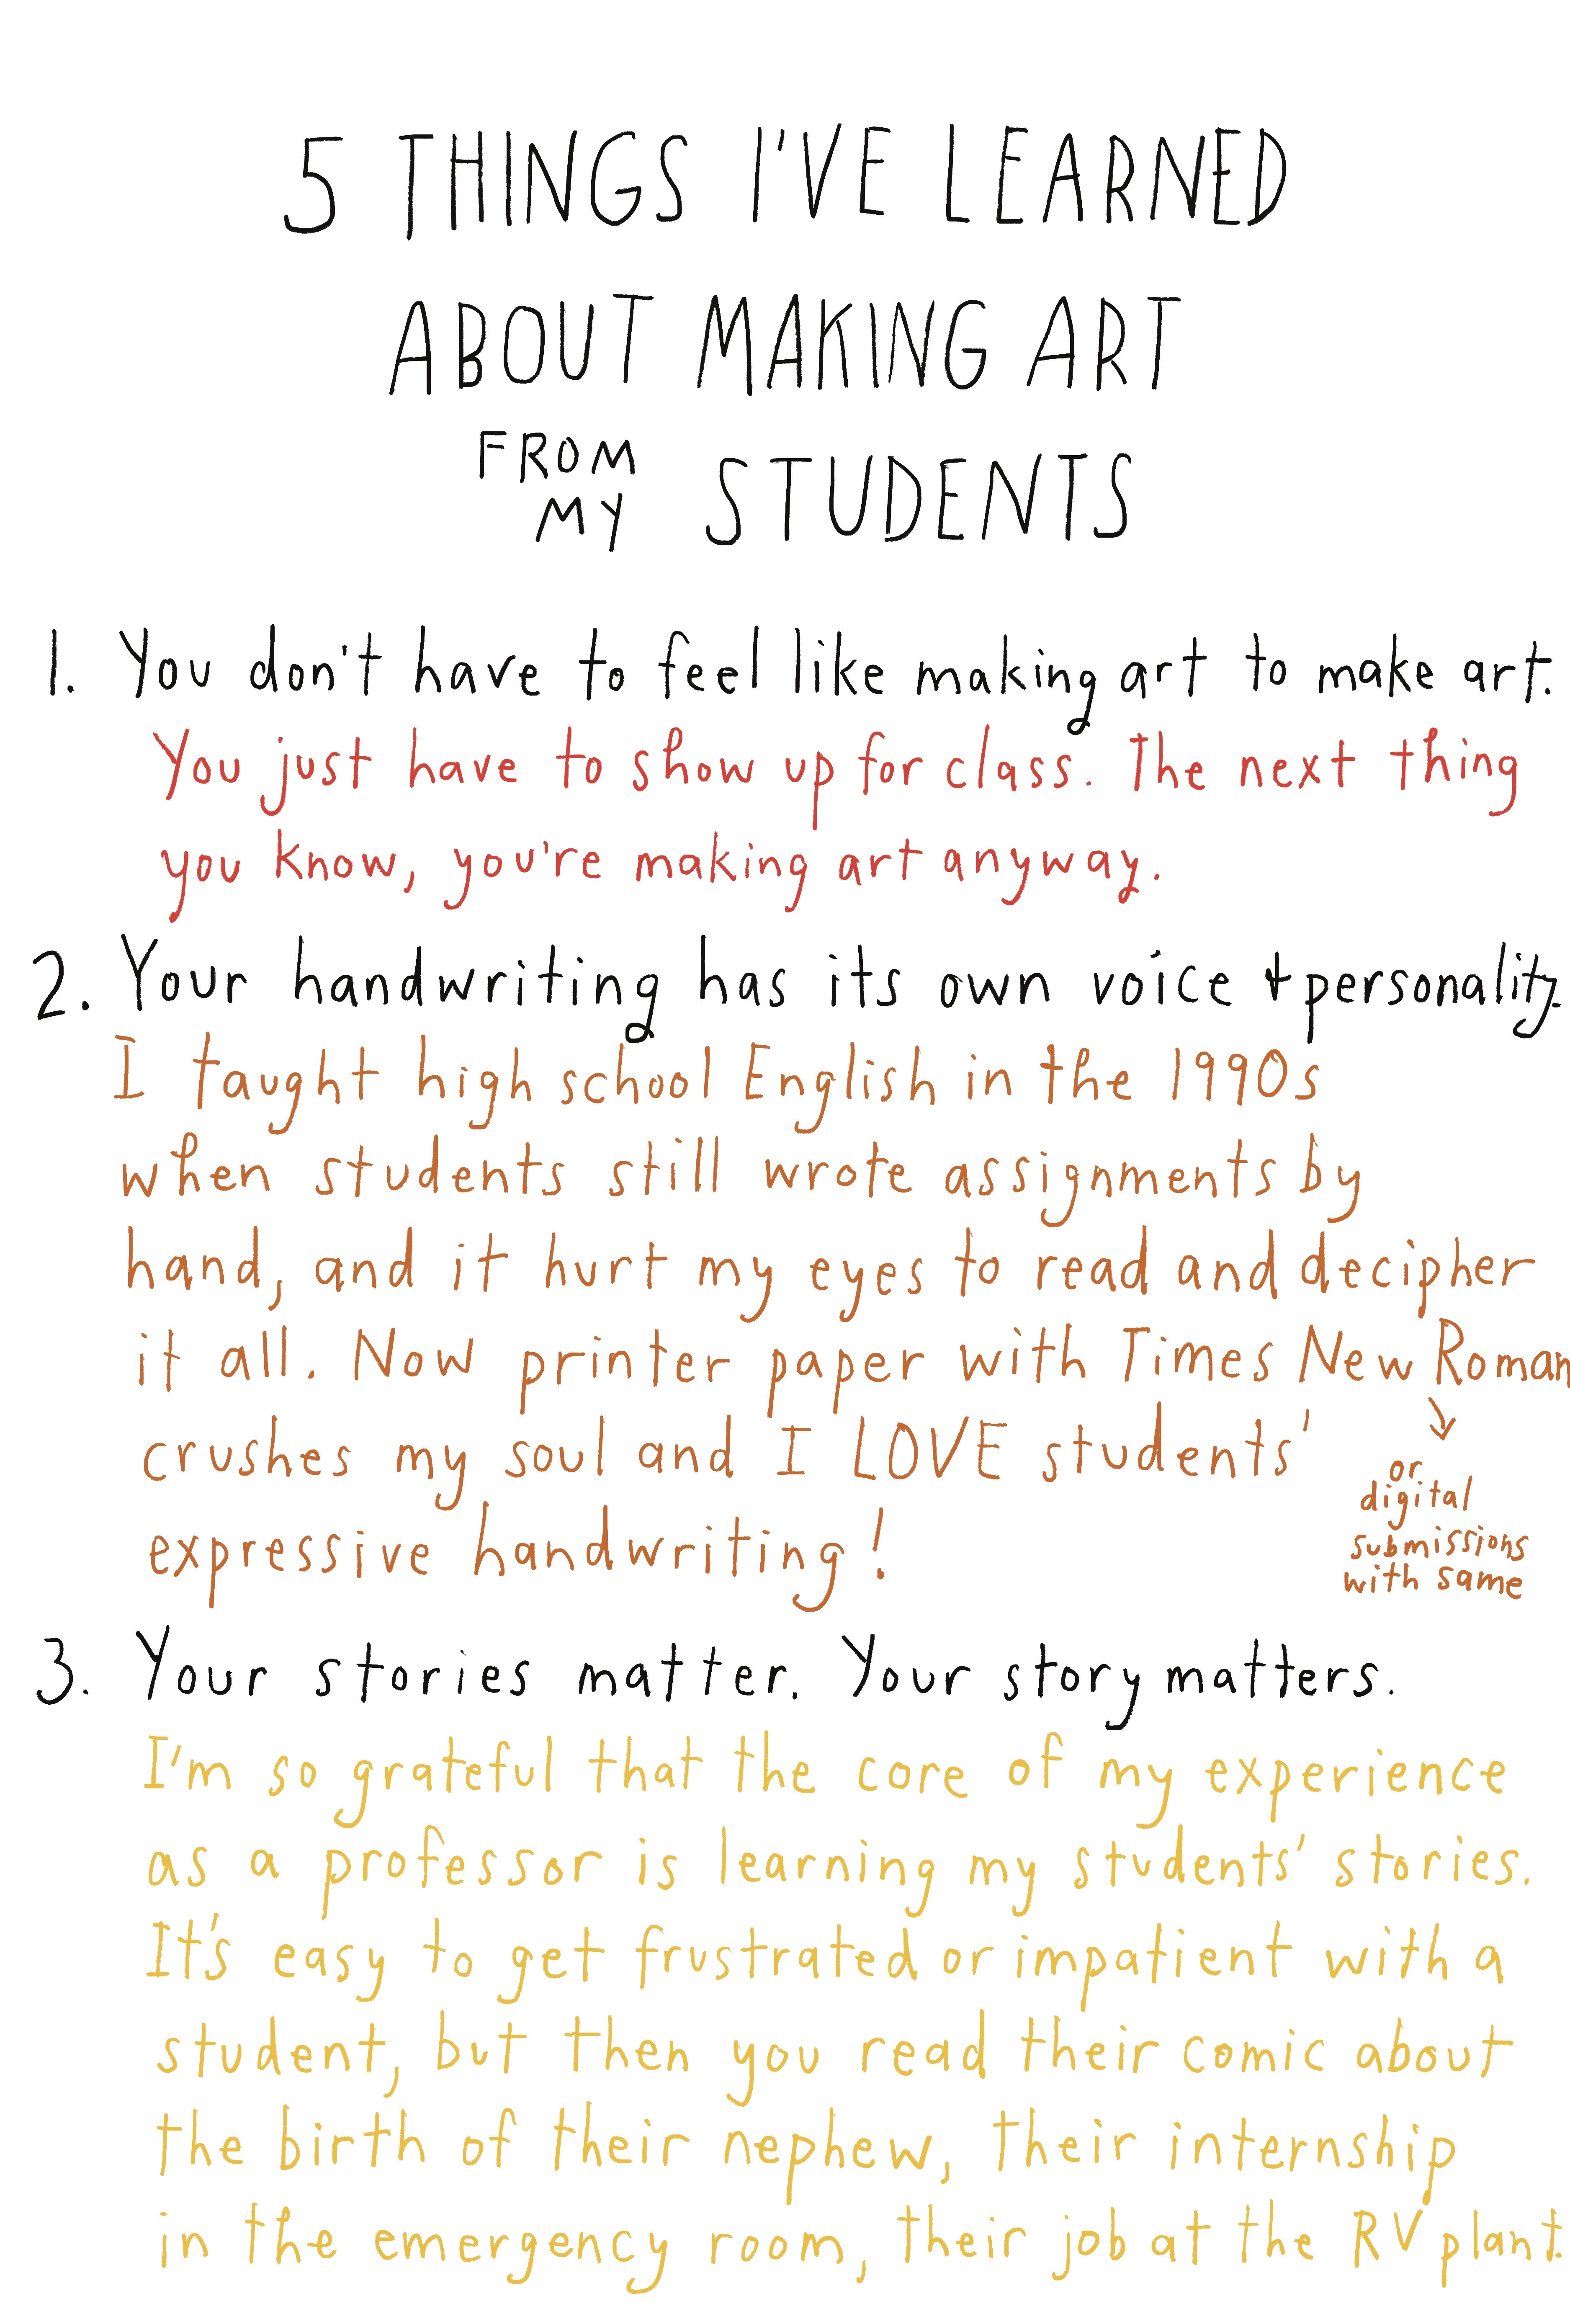 5 THINGS I'VE LEARNED
ABOUT MAKING ART
FROM
MY STUDENTS
1. You don't have to feel like making art to make art.
You just have to show up for class. The next thing
you know, you're making art anyway.
2. Your handwriting has its own voice + personality.
I taught high school English in the 1990s
when students still wrote assignments by
hand, and it hurt my eyes to read and decipher
it all. Now printer paper with Times New Roman
crushes my soul and I LOVE students'
expressive handwriting!
or
digital
submissions
with same
3. Your stories matter. Your story matters.
I'm so grateful that the core of my experience
as a professor is learning my students' stories.
It's easy to get frustrated or impatient with a
student, but then you read their comic about
the birth of their nephew, their internship
in the emergency room, their job at the RV plant.